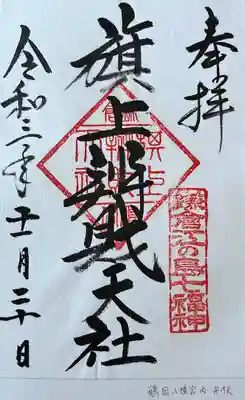 奉拝
旗上辨財天社
鎌倉江の島七福神
令和二年十一月三十日
鶴岡八幡宮内